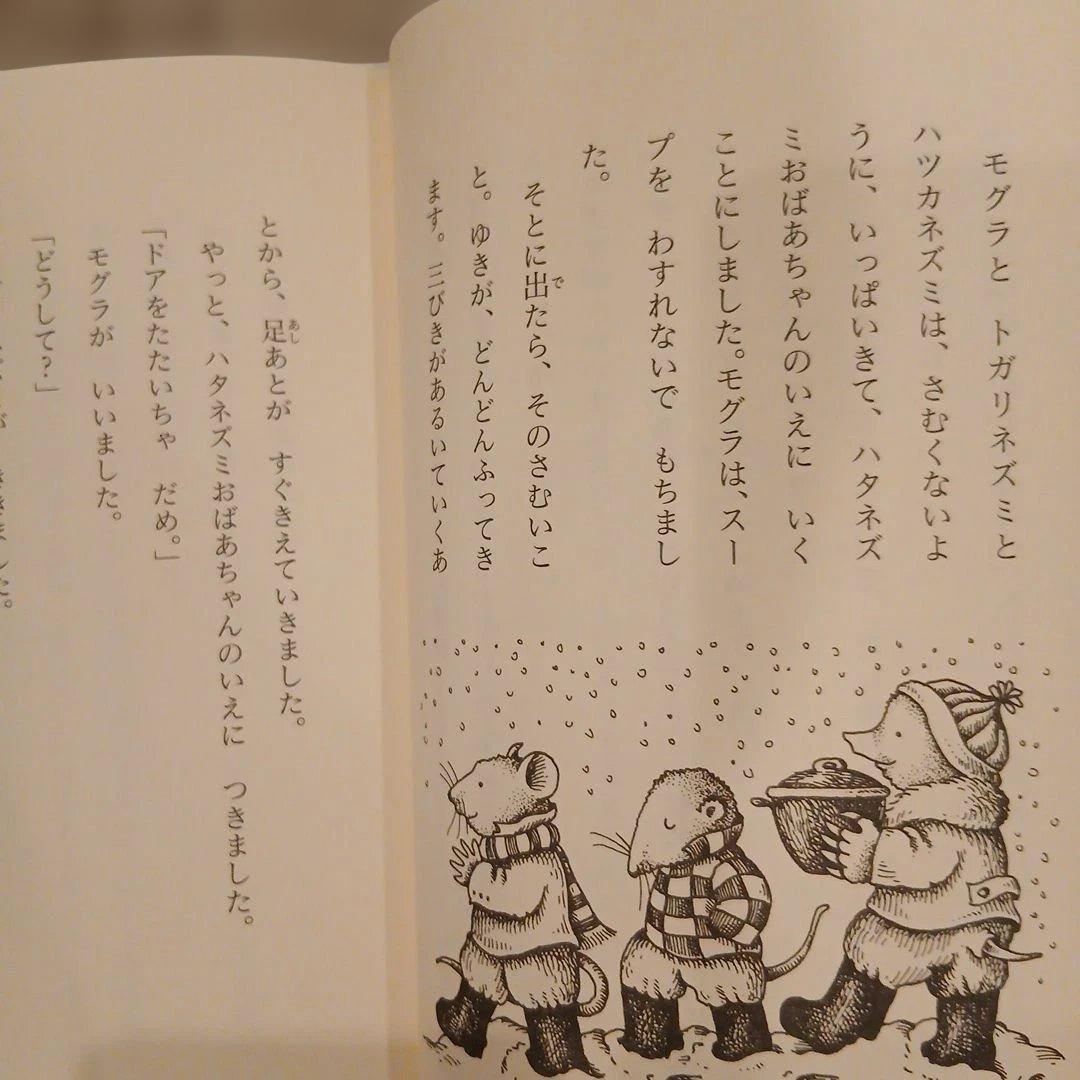 モグラと トガリネズミと
ハツカネズミは、さむくないよ
うに、いっぱいきて、ハタネズ
ミおばあちゃんのいえに いく
ことにしました。モグラは、スー
プを わすれないで もちまし
た。
そとに出たら、そのさむいこ
と。ゆきが、どんどんふってき
ます。三びきがあるいていくあ
とから、足あとが すぐきえていきました。
やっと、ハタネズミおばあちゃんのいえに つきました。
「ドアをたたいちゃ だめ。」
モグラが いいました。
「どうして?」